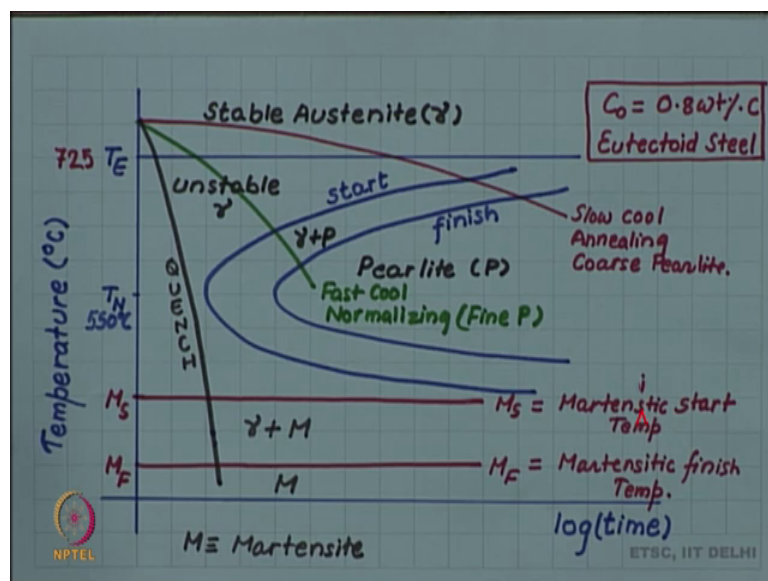 Stable Austenite(γ)
C₀ = 0.8wt%.C
Eutectoid Steel
725 T_E
unstable
γ
start
γ+P
finish
Slow cool
Annealing
Coarse Pearlite.
Pearlite (P)
T_N
550°C
Fast Cool
Normalizing (Fine P)
QUENCH
Temperature (°C)
M_S
M_S = Martenstic start
i
Temp
γ + M
M_F
M_F = Martensitic finish
Temp.
M
log(time)
M ≡ Martensite
NPTEL
ETSC, IIT DELHI